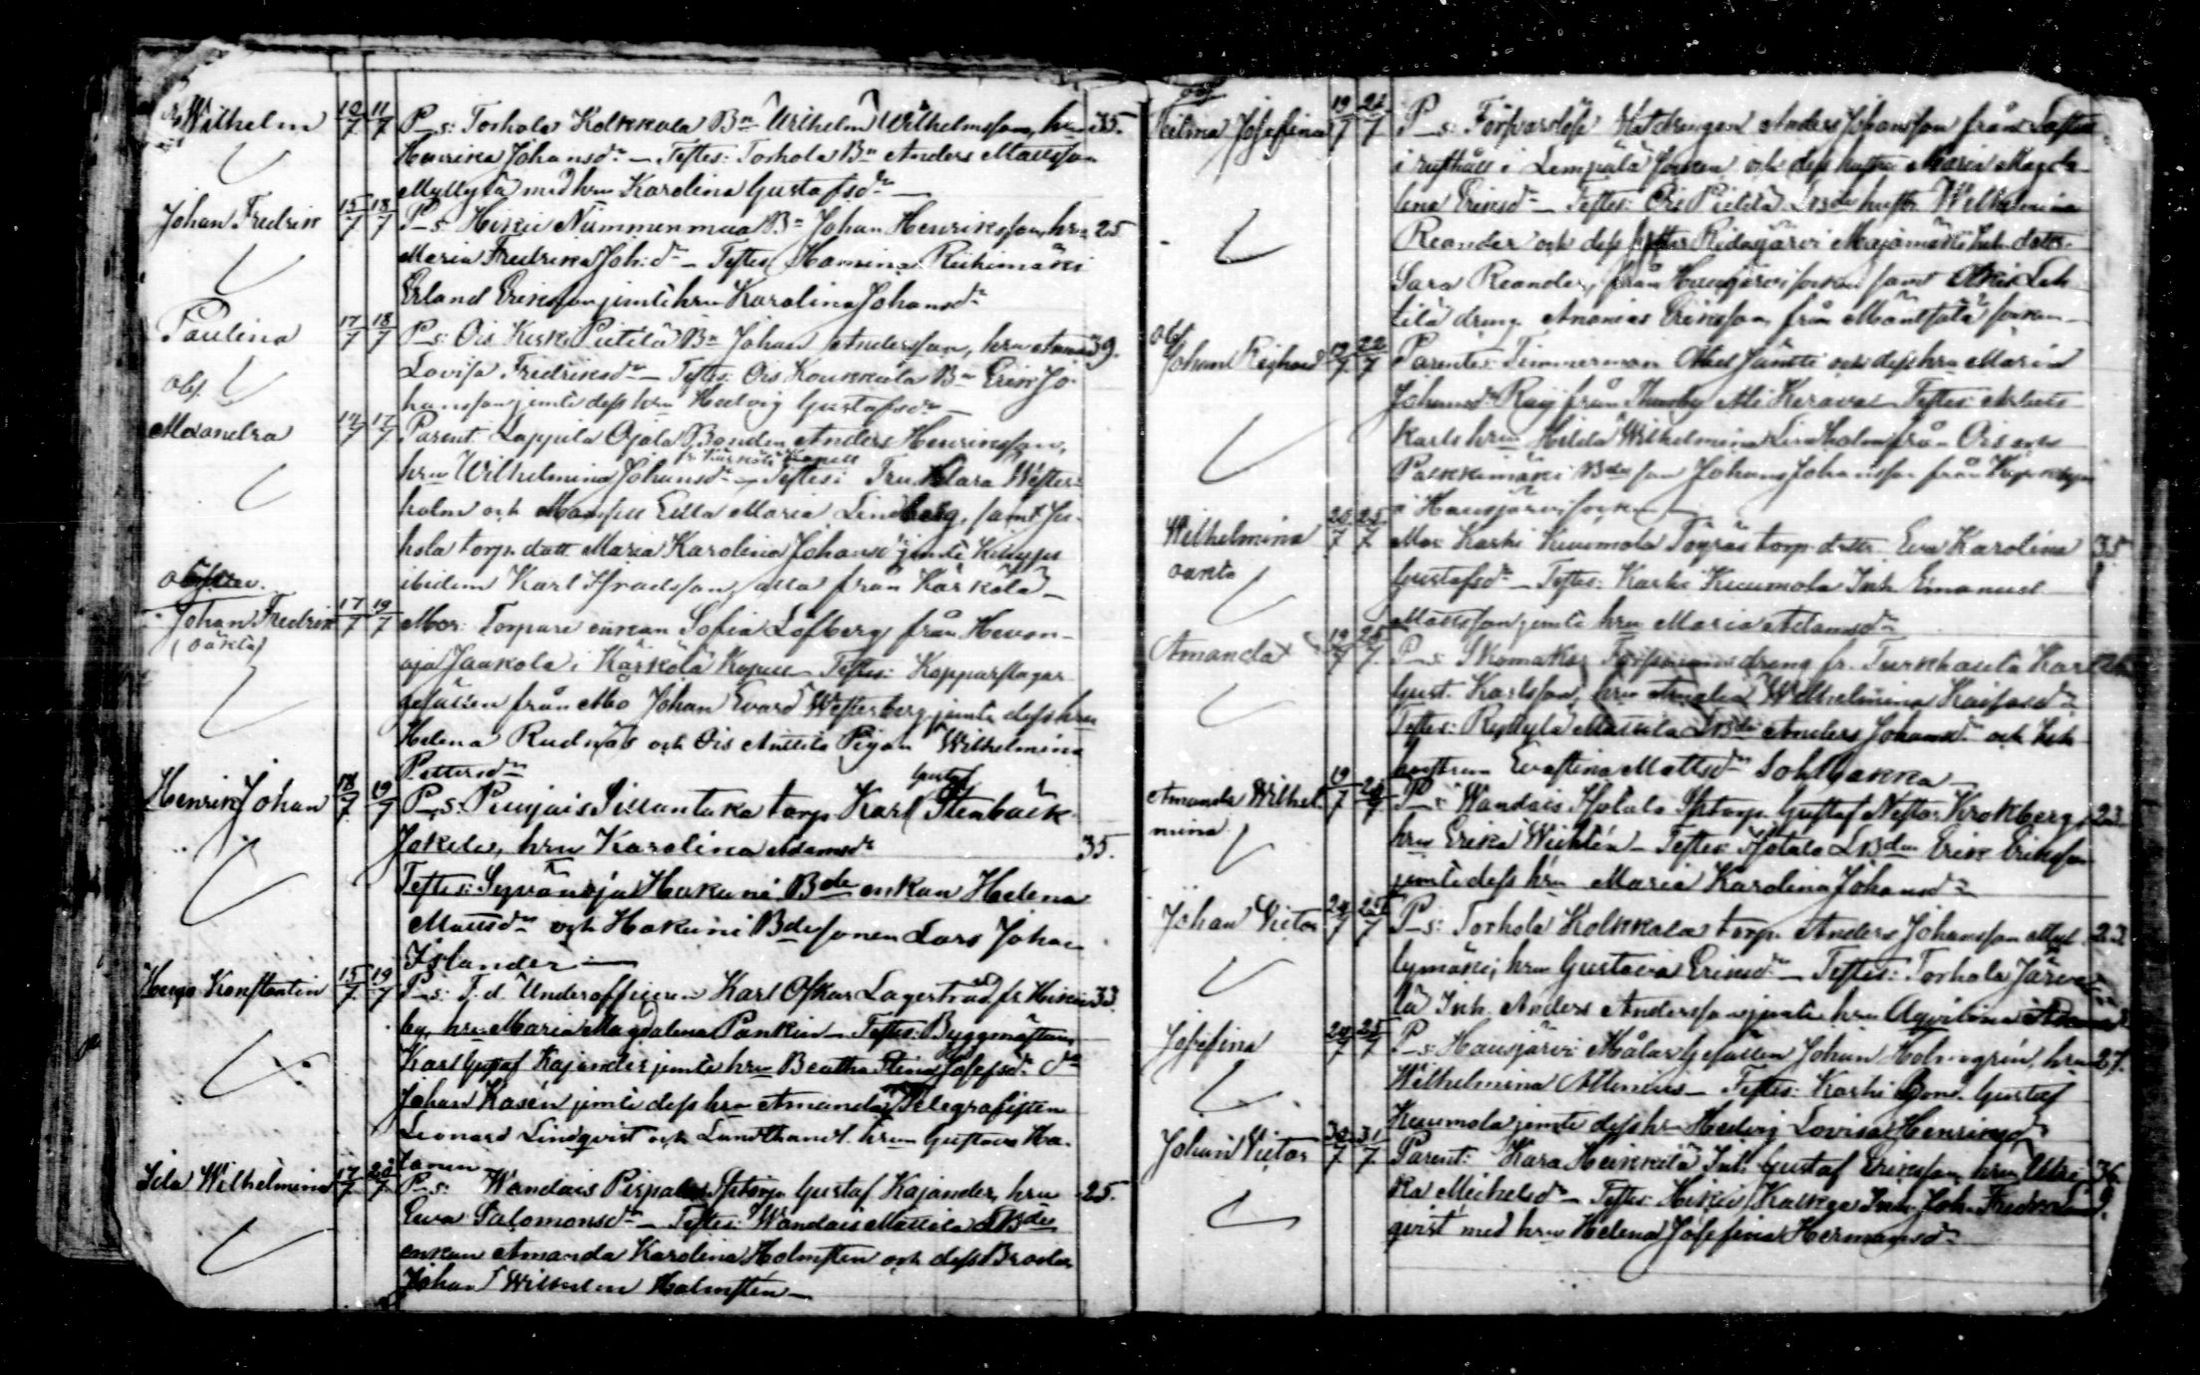 Wilhelm 10/7 11/7 P_s: Torhola Kolkkala Bn Wilhelm Wilhelmsson, hru 35.
Henrika Johansdr – Testes: Torhola Bn Anders Mattsson
Myllylä med hru Karolina Gustafsdr –
Johan Fredrik 15/7 18/7 P_s: Hikiä Nummenmaa Bn Johan Henriksson, hru 25
Maria Fredrika Joh:dr – Testes: Riihimäki
Erland Eriksson jemte hru Karolina Johansdr
Paulina 17/7 18/7 P_s: Ois Keski Pietilä Bn Johan Andersson, hru Anna 39.
Lovisa Fredriksdr – Testes: Ois Koukkula Bn Erik Jo-
obs.
hansson jemte dess hru Hedvig Gustafsdr –
Alexandra 14/7 17/7 Parent. Lappila Ojala Bonden Anders Henriksson,
fr Kärkölä Kapell
hru Wilhelmina Johansdr – Testes: Fru Klara Wester-
holm och Mamsell Edla Maria Lindberg, samt Ju-
hola torp. dott. Maria Karolina Johansdr jemte
ibidem Karl alla från Kärkölä –
Johan Fredrik 17/7 19/7 Mor: Torpare enkan Sofia Löfberg från Hevon-
(oäkta)
oja Jaakola i Kärkölä Kapell – Testes: Kopparslagar
gesällen från Åbo Johan Evard Westerberg jemte dess hru
Helena Rudnäs och Ois Anttila Pigan Wilhelmina
Pettersdr
Henrik Johan 18/7 19/7 P_s: Puujais Sillantaka torp Karl Gustaf Stenbäck
Jokela, hru Karolina Adamsdr 35.
Testes: Syvänoja Hakuni Bde enkan Helena
Mattsdr och Hakuni Bdesonen Lars Johan
Islander –
Hugo Konstantin 15/7 19/7 P_s: T.d. Underofficeren Karl Oskar Lagerstråd fr Hikiä 33.
by, hru Maria Magdalena Pankin – Testes: Byggmästaren
Karl Gustaf Kajander jemte hru Beatha Stina Josefsdr
Johan Kasén jemte dess hru Amanda, Telegrafisten
Leonard Lindqvist och Landthandl. hru Gustava Ha-
lanen –
Ida Wilhelmina 17/7 20/7 P_s: Wandais Pirpala torp. Gustaf Kajander, hru 25.
Eva Salomonsdr – Testes: Wandais Mattila Bde
enkan Amanda Karolina Holmsten och dess Broder
Johan Wilhelm Holmsten –
obs
Selma Josefina 19/7 22/7 P_s: Anders Johansson från
i Lempälä socken och dess hustru Maria Magda-
lena Eriksdr – Testes: Ois Pietilä hustr Wilhelmina
Reander och dess syster Ridasjärvi Majamäki Inh. dotter
Sara Reander, från Hausjärvi socken samt Leh-
tilä dreng Ananias Eriksson från Mäntsälä socken –
obs
Johan Richard 19/7 22/7 Parentes: Timmerman Abel Jäntti och dess hru Maria
Johansdr från Ali Kerava – Testes:
Karls hru Hilda Wilhelmina Lindholm från Ois och
Palkkimäki Bde son Johan Johansson från
i Hausjärvi socken –
Wilhelmina 20/7 25/7 Mor: Karhi Kuumola Töyräs torp dotter Eva Karolina 35
oäkta
Gustafsdr – Testes: Karhi Kuumola Inh. Emanuel
Mattsson jemte hru Maria Adamsdr
Amanda 19/7 25/7 P_s: Skomakar dreng fr. Turkhauta Karl
Gust. Karlsson, hru Amalia Wilhelmina Kaisasdr
Testes: Ryttylä Mattila Anders Johansd och Inh.
hustrun Evastina Mattsdr Sohlbacka –
Amanda Wilhel- 19/7 25/7 P_s: Wandais Hotala torp. Gustaf Nestor Krokberg, 23.
mina
hru Erika Wichtén – Testes: Hotala Erik Eriksson
jemte dess hru Maria Karolina Johansdr
Johan Victor 24/7 25/7 P_s: Torhola Kolkkala torp. Anders Johansson Myl- 23.
lymäki, hru Gustava Eriksdr – Testes: Torhola Järve-
lä Inh. Anders Andersson jemte hru Aqvilina
Josefina 24/7 25/7 P_s: Hausjärvi Målar Gesällen Johan Holmgrén, hru 27.
Wilhelmina Allenius – Testes: Karhi Bon. Gustaf
Kuumola jemte dess hru Hedvig Lovisa Henriksdr
Johan Victor 30/7 31/7 Parent: Kara Heikkilä Inh. Gustaf Eriksson, hru Ulri- 36
ka Michelsdr – Testes: Hikiä Inh. Joh. Fredr.
qvist med hru Helena Josefina Hermansdr